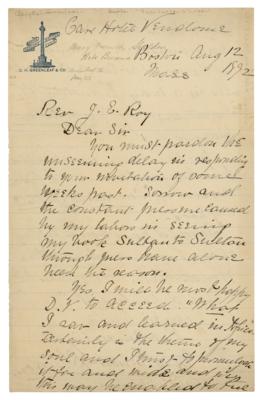 Care Hotel Vendome
Boston Aug 12
Mass 1892
C. H. GREENLEAF & CO.
Rev. J. E. Roy
Dear Sir
You must pardon the
unseeming delay in responding
to your invitation of some
weeks past. Sorrow and
the constant pressure caused
by my labors in seeing
my book Sultan to Sultan
through press have alone
been the reason.
Yes, I will be most happy
D.V. to accede. "What
I saw and learned in Africa"
certainly is the theme of my
soul and I must to promulgate
it far and wide and if
this may be enabled to